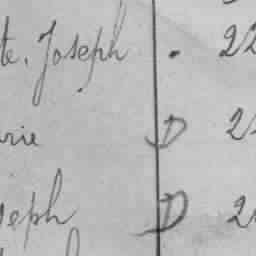 te, Joseph . 22
rie D 2
seph D 2